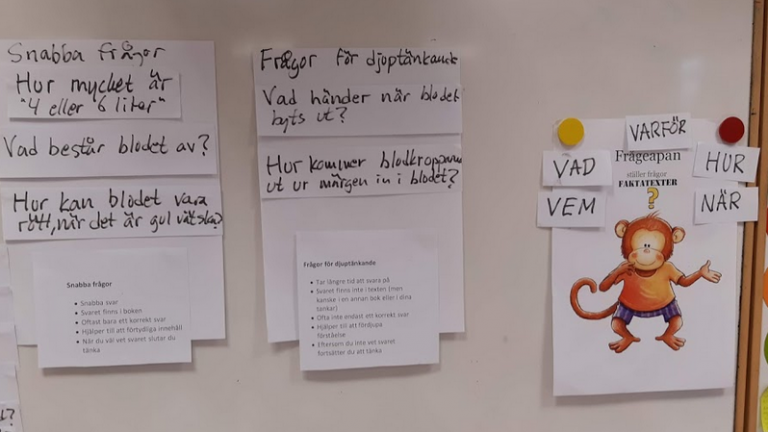 Snabba frågor
Hur mycket är
"4 eller 6 liter"
Vad består blodet av?
Hur kan blodet vara
rött, när det är gul vätska?
Snabba frågor
• Snabba svar
• Svaret finns i boken
• Oftast bara ett korrekt svar
• Hjälper till att förtydliga innehåll
• När du väl vet svaret slutar du
tänka
Frågor för djuptänkande
Vad händer när blodet
byts ut?
Hur kommer blodkropparna
ut ur märgen in i blodet?
Frågor för djuptänkande
• Tar längre tid att svara på
• Svaret finns inte i texten (men
kanske i en annan bok eller i dina
tankar)
• Ofta inte endast ett korrekt svar
• Hjälper till att fördjupa
förståelse
• Eftersom du inte vet svaret
fortsätter du att tänka
VARFÖR
VAD
Frågeapan
HUR
ställer frågor
FAKTATEXTER
VEM
?
NÄR